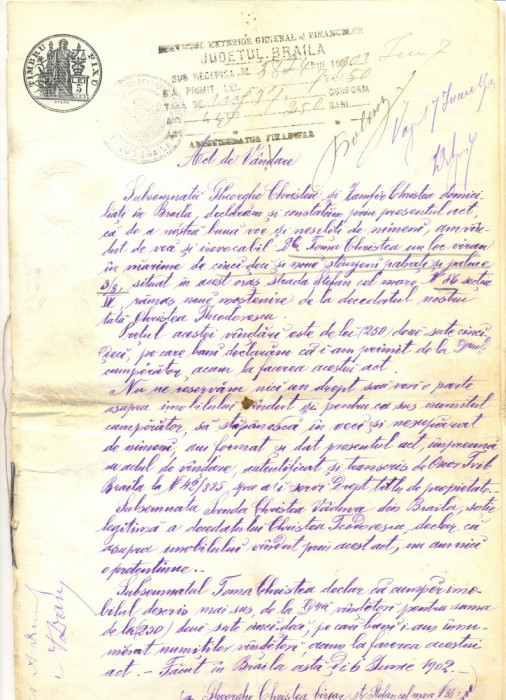 TIMBRU FIXU
SERVICIUL EXTERIOR GENERAL al FINANCELOR
JUDEȚUL BRAILA
SUB RECEPISA No.
S'A PRIMIT LEI
TAXA DE CONFORM
ART. 250 BANI
ADMINISTRATOR FINANCIAR
7 Iunie
Act de Vândare
Subsemnații Gheorghe Christea și Zamfir Christea domici-
liați în Braila, declarăm și constatăm prin presentul act,
că de a nostră bună voe și nesiliți de nimeni, am vân-
dut de veci și irevocabil Dlui Toma Christea un loc viran
în mărime de cinci deci și nouă stânjeni patrați și palme
3/8, situat în acest oraș strada Ștefan cel mare No 86 sectia
IV rămas noue moștenire de la decedatul nostru
tată Christea Theodorescu.
Prețul acestei vîndări este de lei (250) doue sute cinci
deci, pe care bani declarăm că i am primit de la Dnul
cumpărător, acum la facerea acestui act.
Nu ne reservăm nici un drept sau veri o parte
asupra imobilului vîndut și pentru ca sus numitul
cumpărător, să stăpânéscă în veci și nesupărat
de nimeni, am format și dat presentul act, împreună
cu actul de vîndare, autentificat și transcris de Onor Trib
Braila la No 42/885 spre a'i servi drept titlu de proprietate.
Subsemnata Londa Christea Văduva din Braila, soție
legitimă a decedatului Christea Teodorescu, declar că
asupra imobilului vîndut prin acest act, nu am nici
o pretențiune.
Subsemnatul Toma Christea declar că cumpăr imo-
bilul descris mai sus, de la Dnii vîndători pentru suma
de lei (250) doue sute deci deci, pe cari bani i-am înnu-
mărat numiților vîndători, acum la facerea acestui
act. - Făcut în Brăila astă-di 6 Iunie 1902.
Gheorghe Christea str. Ștefan cel mare No 88